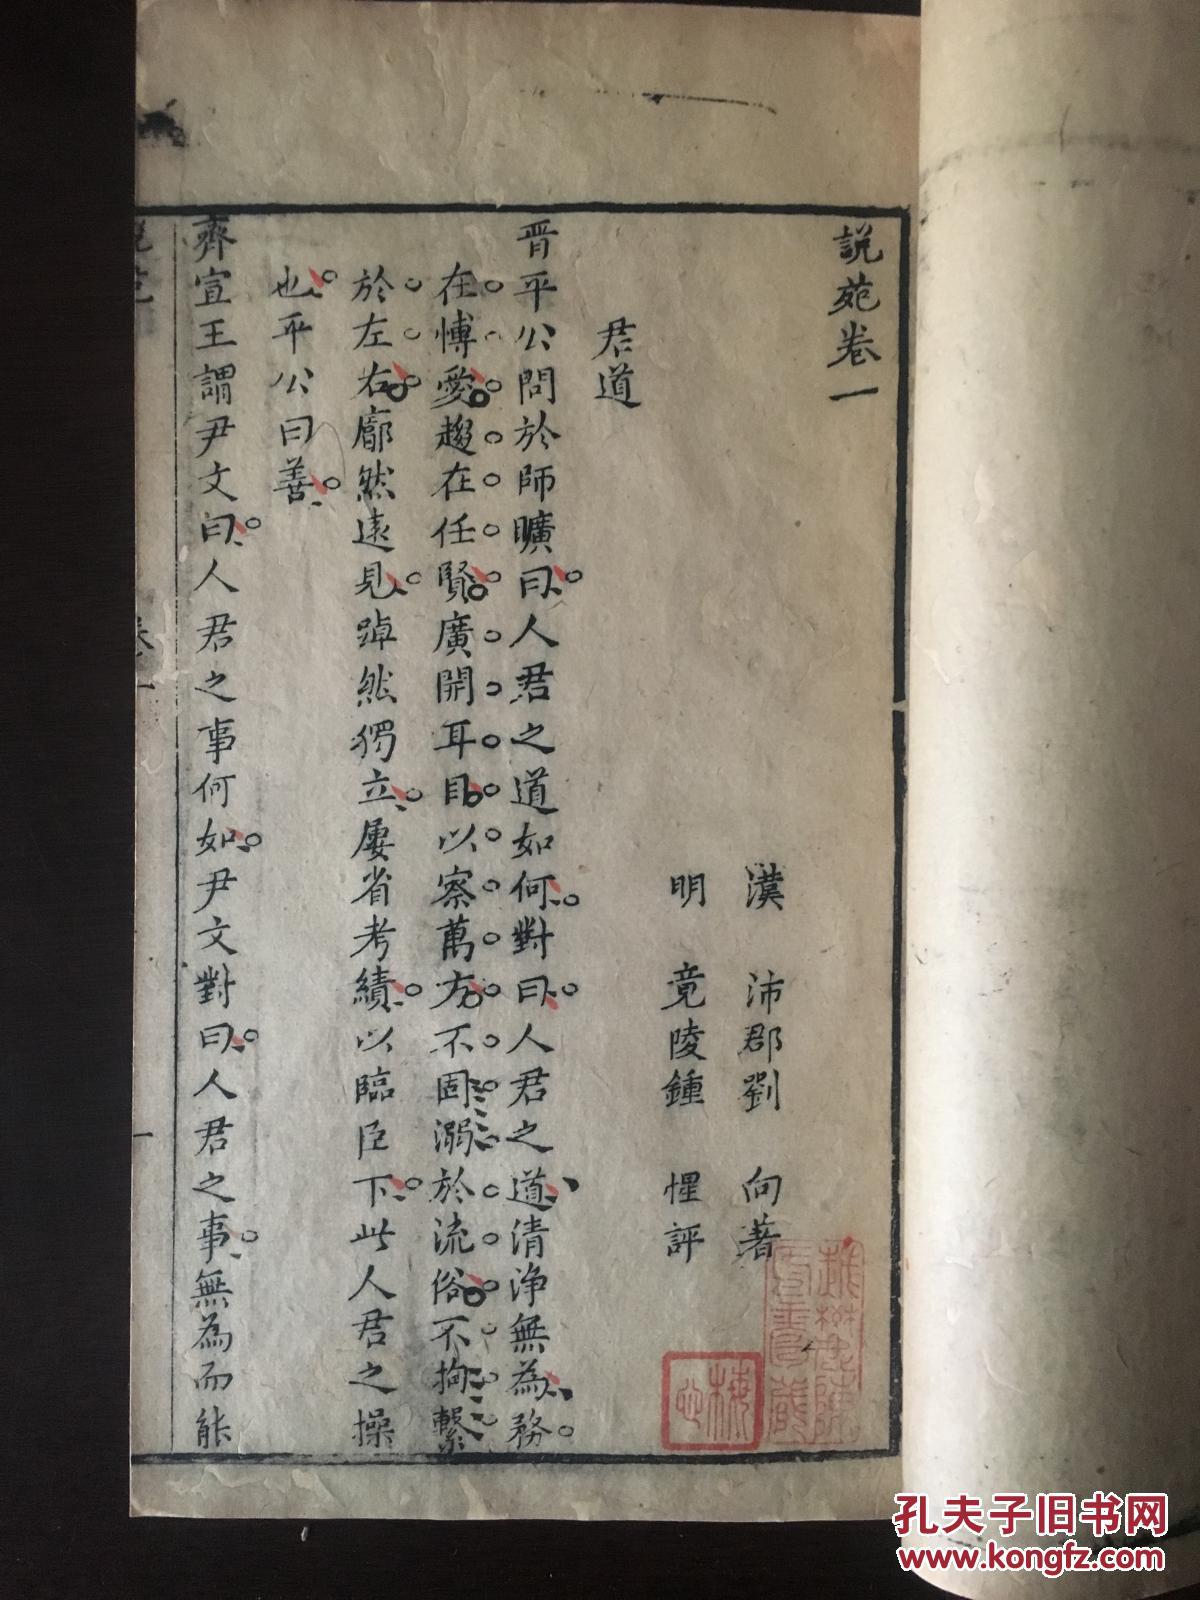 說苑卷一
漢 沛郡劉 向著
明 竟陵鍾 惺評
君道
晉平公問於師曠曰人君之道如何對曰人君之道清浄無為務
在愽愛趨在任賢廣開耳目以察萬方不固溺於流俗不拘繫
於左右廓然遠見踔然獨立屢省考績以臨臣下此人君之操
也平公曰善
齊宣王謂尹文曰人君之事何如尹文對曰人君之事無為而能
說苑
卷一
一
孔夫子旧书网
www.kongfz.com